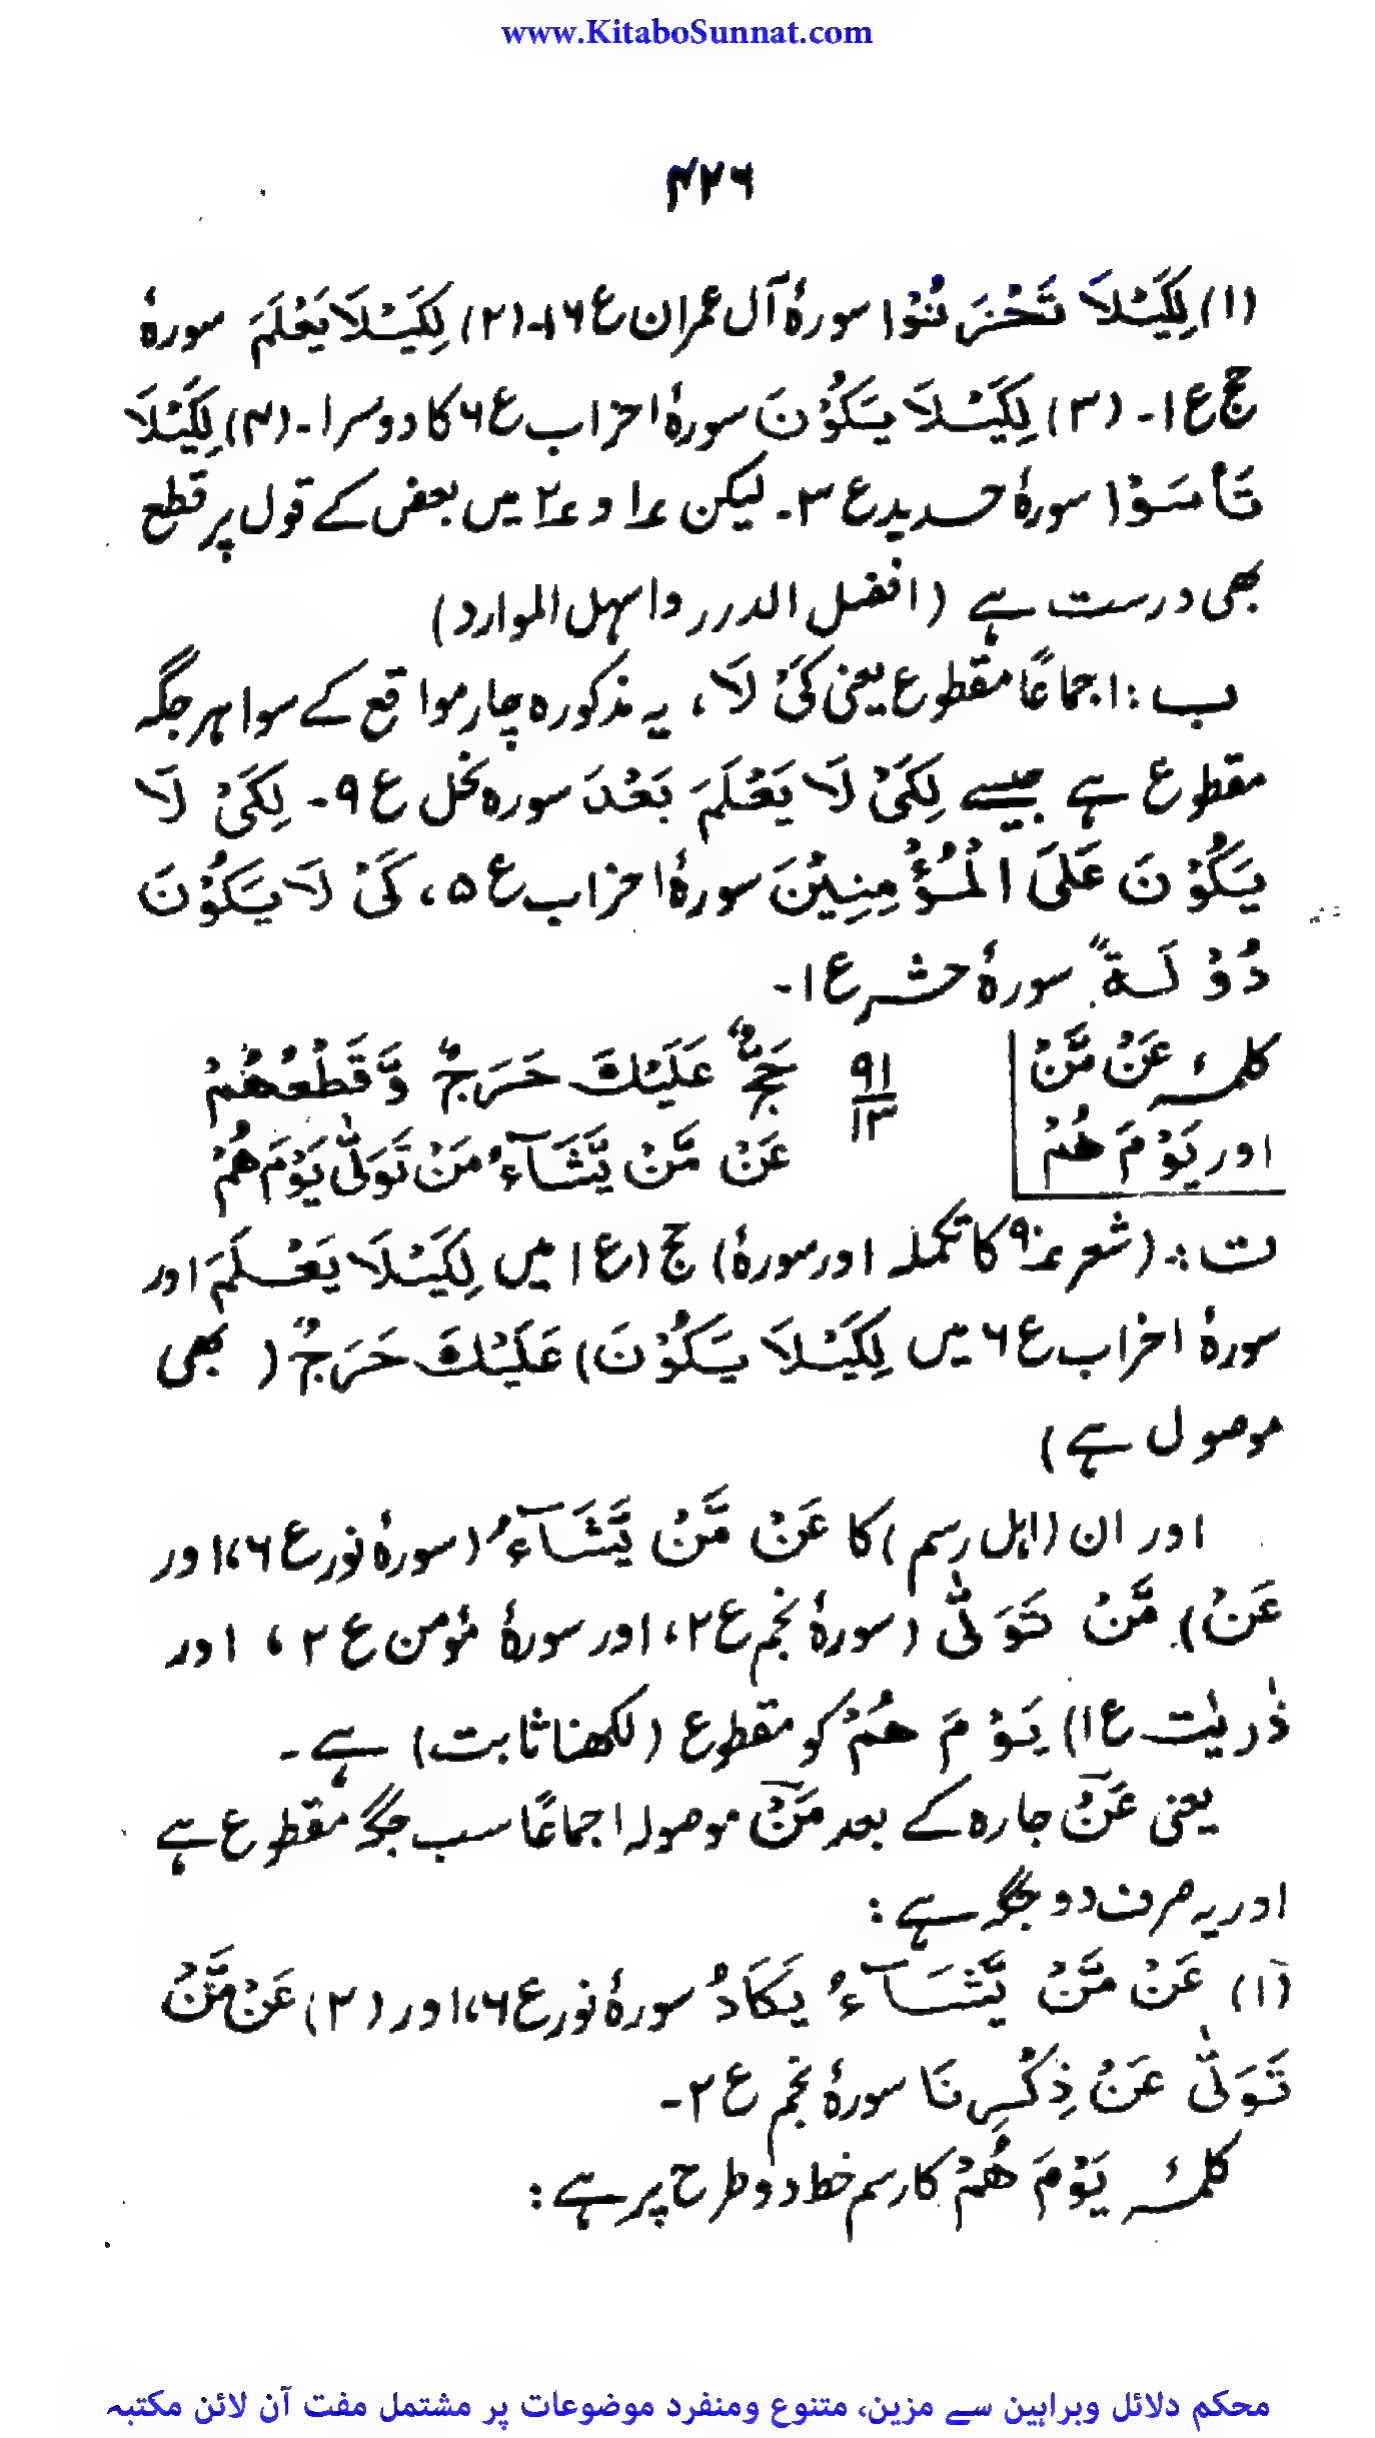 www.KitaboSunnat.com
۴۲۶
(۱) لِكَيْلَا تَحْزَنُوْا سورۂ آل عمران ع ۱۶۔ (۲) لِكَيْلَا يَعْلَمَ سورۂ
حج ع ۱۔ (۳) لِكَيْلَا يَكُوْنَ سورۂ احزاب ع ۶ کا دوسرا۔ (۴) لِكَيْلَا
تَأْسَوْا سورۂ حدید ع ۳۔ لیکن ؏۱ و ؏۲ میں بعض کے قول پر قطع
بھی درست ہے (افضل الدرر واسہل الموارد)
ب: اجماعًا مقطوع یعنی كَيْ لَا، یہ مذکورہ چار مواقع کے سوا ہر جگہ
مقطوع ہے جیسے لِكَيْ لَا يَعْلَمَ بَعْدَ سورہ نحل ع ۹۔ لِكَيْ لَا
يَكُوْنَ عَلَى الْمُؤْمِنِيْنَ سورۂ احزاب ع ۵، كَيْ لَا يَكُوْنَ
دُوْلَةً سورۂ حشر ع ۱۔
کلمۂ عَنْ مَّنْ ۹۱ حَجٌّ عَلَيْكَ حَرَجٌ وَّقَطْعُهُمْ
اور يَوْمَ هُمْ ۱۳ عَنْ مَّنْ يَّشَآءُ مَنْ تَوَلّٰى يَوْمَ هُمْ
ت:۔ (شعر نمبر ۹۰ کا تکملہ اور سورۂ) حج (ع ۱ میں لِكَيْلَا يَعْلَمَ اور
سورۂ احزاب ع ۶ میں لِكَيْلَا يَكُوْنَ) عَلَيْكَ حَرَجٌ ( بھی
موصول ہے)
اور ان (اہل رسم) کا عَنْ مَّنْ يَّشَآءُ (سورۂ نور ع ۶، اور
عَنْ) مَّنْ تَوَلّٰى (سورۂ نجم ع ۲، اور سورۂ مؤمن ع ۲، اور
ذٰریٰت ع ۱) يَوْمَ هُمْ کو مقطوع (لکھنا ثابت) ہے۔
یعنی عَنْ جارہ کے بعد مَنْ موصولہ اجماعًا سب جگہ مقطوع ہے
اور یہ صرف دو جگہ ہے:
(۱) عَنْ مَّنْ يَّشَآءُ يَكَادُ سورۂ نور ع ۶، اور (۲) عَنْ مَّنْ
تَوَلّٰى عَنْ ذِكْرِنَا سورۂ نجم ع ۲۔
کلمۂ يَوْمَ هُمْ کا رسم خط دو طرح پر ہے:
محکم دلائل وبراہین سے مزین، متنوع ومنفرد موضوعات پر مشتمل مفت آن لائن مکتبہ